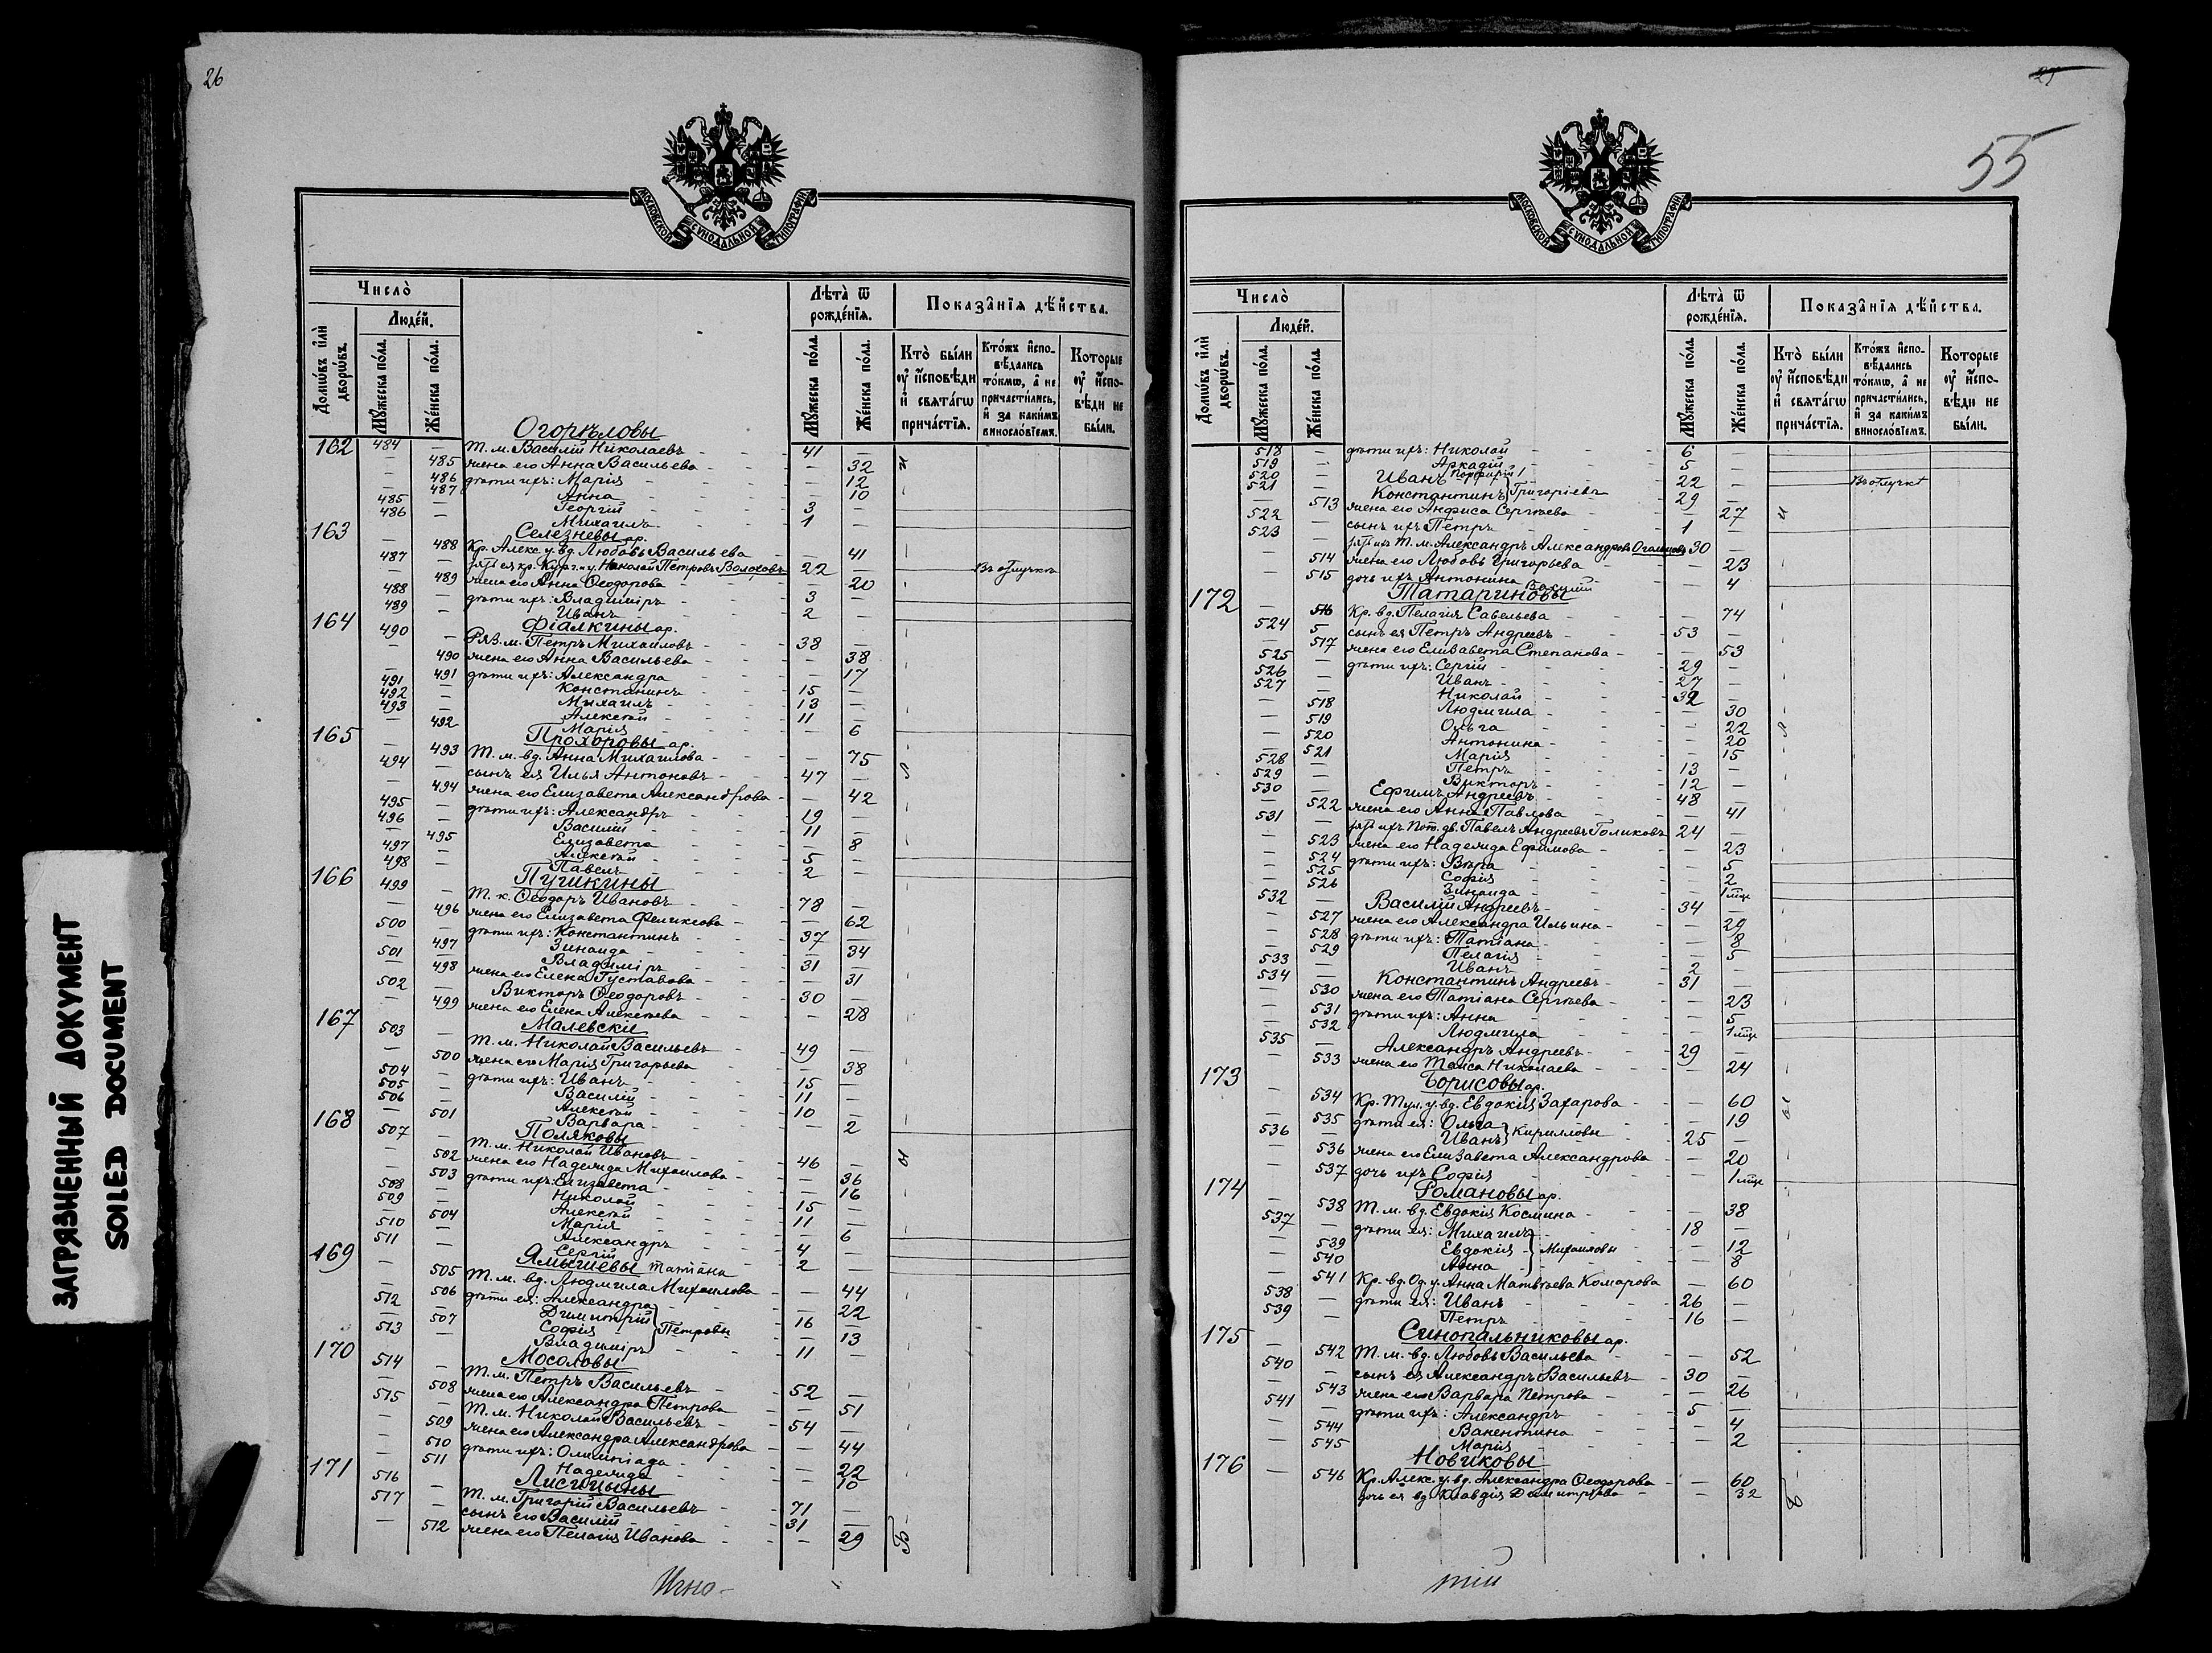 26
МОСКОВСКОЙ СѴНОДАЛЬНОЙ ТИПОГРАФІИ
Число̀
Людéй.
Домѡ́въ и҆лѝ дворѡ́въ.
Мꙋ́жеска по́ла.
Же́нска по́ла.
Лѣ́та ѿ рожде́нїѧ.
Мꙋ́жеска по́ла.
Же́нска по́ла.
Показа̑нїѧ дѣ́йства.
Кто̀ бы́ли ᲂу҆ и҆сповѣ́ди и҆ свѧта́гѡ прича́стїѧ.
Кто́жъ и҆сповѣ́дались то́кмѡ, а҆ не причасти́лись, и҆ за каки́мъ винослові́емъ.
Которые ᲂу҆ и҆сповѣ́ди не бы́ли.
Огорѣловы
162 484 — Т. м. Василій Николаевъ 41 —
— 485 жена его Анна Васильева — 32
— 486 дѣти ихъ: Марія — 12
— 487 Анна — 10
485 — Георгій 3 —
486 — Михаилъ 1 —
163 Селезневы ар.
— 488 Кр. Алекс. у. вд. Любовь Васильева — 41
487 — зять ея кр. Николай Петровъ Волоховъ 22 — Въ отлучкѣ
— 489 жена его Анна Ѳеодорова — 20
488 — дѣти ихъ: Владиміръ 3 —
489 — Иванъ 2 —
164 Фіалкины ар.
490 — Ряз. м. Петръ Михаиловъ 38 —
— 490 жена его Анна Васильева — 38
— 491 дѣти ихъ: Александра — 17
491 — Констанинъ 15 —
492 — Михаилъ 13 —
493 — Алексѣй 11 —
— 492 Марія — 6
165 Прохоровы ар.
— 493 Т. м. вд. Анна Михаилова — 75
494 — сынъ ея Илья Антоновъ 47 —
— 494 жена его Елизавета Александрова — 42
495 — дѣти ихъ: Александръ 19 —
496 — Василій 11 —
— 495 Елизавета — 8
497 — Алексѣй 5 —
498 — Павелъ 2 —
166 Пушкины
499 — Т. к. Ѳеодоръ Ивановъ 78 —
— 496 жена его Елизавета Феликсова — 62
500 — дѣти ихъ: Константинъ 37 —
— 497 Зинаида — 34
501 — Владиміръ 31 —
— 498 жена его Елена Густавова — 31
502 — Викторъ Ѳеодоровъ 30 —
— 499 жена его Елена Алексѣева — 28
167 Малевски
503 — Т. м. Николай Васильевъ 49 —
— 500 жена его Марія Григорьева — 38
504 — дѣти ихъ: Иванъ 15 —
505 — Василій 11 —
506 — Алексѣй 10 —
— 501 Варвара — 2
168 Поляковы
507 — Т. м. Николай Ивановъ 46 —
— 502 жена его Надежда Михаилова — 36
— 503 дѣти ихъ: Елизавета — 16
508 — Николай 15 —
509 — Алексѣй 11 —
— 504 Марія — 6
510 — Александръ 4 —
511 — Сергій 2 —
169 Ямышевы Татіана
— 505 Т. м. вд. Людмила Михаилова — 44
— 506 дѣти ея: Александра — 22
512 — Димитрій 16 —
— 507 Софія } Петровы — 13
513 — Владиміръ 11 —
170 Мосоловы
514 — Т. м. Петръ Васильевъ 52 —
— 508 жена его Александра Петрова — 51
515 — Т. м. Николай Васильевъ 54 —
— 509 жена его Александра Александрова — 44
— 510 дѣти ихъ: Олимпіада — 22
— 511 Надежда — 10
171 Лисицыны
516 — Т. м. Григорій Васильевъ 71 —
517 — сынъ его Василій 31 —
— 512 жена его Пелагія Иванова — 29
Игна-
27
55
МОСКОВСКОЙ СѴНОДАЛЬНОЙ ТИПОГРАФІИ
Число̀
Людéй.
Домѡ́въ и҆лѝ дворѡ́въ.
Мꙋ́жеска по́ла.
Же́нска по́ла.
Лѣ́та ѿ рожде́нїѧ.
Мꙋ́жеска по́ла.
Же́нска по́ла.
Показа̑нїѧ дѣ́йства.
Кто̀ бы́ли ᲂу҆ и҆сповѣ́ди и҆ свѧта́гѡ прича́стїѧ.
Кто́жъ и҆сповѣ́дались то́кмѡ, а҆ не причасти́лись, и҆ за каки́мъ винослові́емъ.
Которые ᲂу҆ и҆сповѣ́ди не бы́ли.
518 — дѣти ихъ: Николай 6 —
519 — Аркадій 5 —
Порфирій 1
520 — Иванъ 22 — Въ отлучкѣ
521 — Константинъ } Григоріевъ 29 —
— 513 жена его Анфиса Сергѣева — 27
522 — сынъ ихъ Петръ 1 —
523 — зять ихъ Т. м. Александръ Александровъ 30 —
— 514 жена его Любовь Григорьева — 23
— 515 дочь ихъ Антонина — 4
172 Татариновы
— 516 Кр. вд. Пелагія Савельева — 74
524 — сынъ ея Петръ Андреевъ 53 —
— 517 жена его Елизавета Степанова — 53
525 — дѣти ихъ: Сергій 29 —
526 — Иванъ 27 —
527 — Николай 32 —
— 518 Людмила — 30
— 519 Ольга — 22
— 520 Антонина — 20
— 521 Марія — 15
528 — Петръ 13 —
529 — Викторъ 12 —
530 — Ефимъ Андреевъ 48 —
— 522 жена его Анна Павлова — 41
531 — зять ихъ Пот. дв. Павелъ Андреевъ Голиковъ 24 —
— 523 жена его Надежда Ефимова — 23
— 524 дѣти ихъ: Вѣра — 5
— 525 Софія — 2
— 526 Зинаида — 1 мѣс
532 — Василій Андреевъ 34 —
— 527 жена его Александра Ильина — 29
— 528 дѣти ихъ: Татіана — 8
— 529 Пелагія — 5
533 — Иванъ 2 —
534 — Константинъ Андреевъ 31 —
— 530 жена его Татіана Сергѣева — 23
— 531 дѣти ихъ: Анна — 5
— 532 Людмила — 1 мѣс
535 — Александръ Андреевъ 29 —
— 533 жена его Таиса Николаева — 24
173 Борисовы ар.
— 534 Кр. Тул. у. вд. Евдокія Захарова — 60
— 535 дѣти ея: Ольга — 19
536 — Иванъ } Кирилловы 25 —
— 536 жена его Елизавета Александрова — 20
— 537 дочь ихъ Софія — 1 мѣс
174 Романовы ар.
— 538 Т. м. вд. Евдокія Космина — 38
537 — дѣти ея: Михаилъ 18 —
— 539 Евдокія } Михаиловы — 12
— 540 Анна — 8
— 541 Кр. вд. Од. у. Анна Матвѣева Комарова — 60
538 — дѣти ея: Иванъ 26 —
539 — Петръ 16 —
175 Синопальниковы ар.
— 542 Т. м. вд. Любовь Васильева — 52
540 — сынъ ея Александръ Васильевъ 30 —
— 543 жена его Варвара Петрова — 26
541 — дѣти ихъ: Александръ 5 —
— 544 Валентина — 4
— 545 Марія — 2
176 Новиковы
— 546 Кр. Алекс. у. вд. Александра Ѳеодорова — 60
дочь ея вд. Клавдія Димитріева — 32
тій
ЗАГРЯЗНЕННЫЙ ДОКУМЕНТ
SOILED DOCUMENT